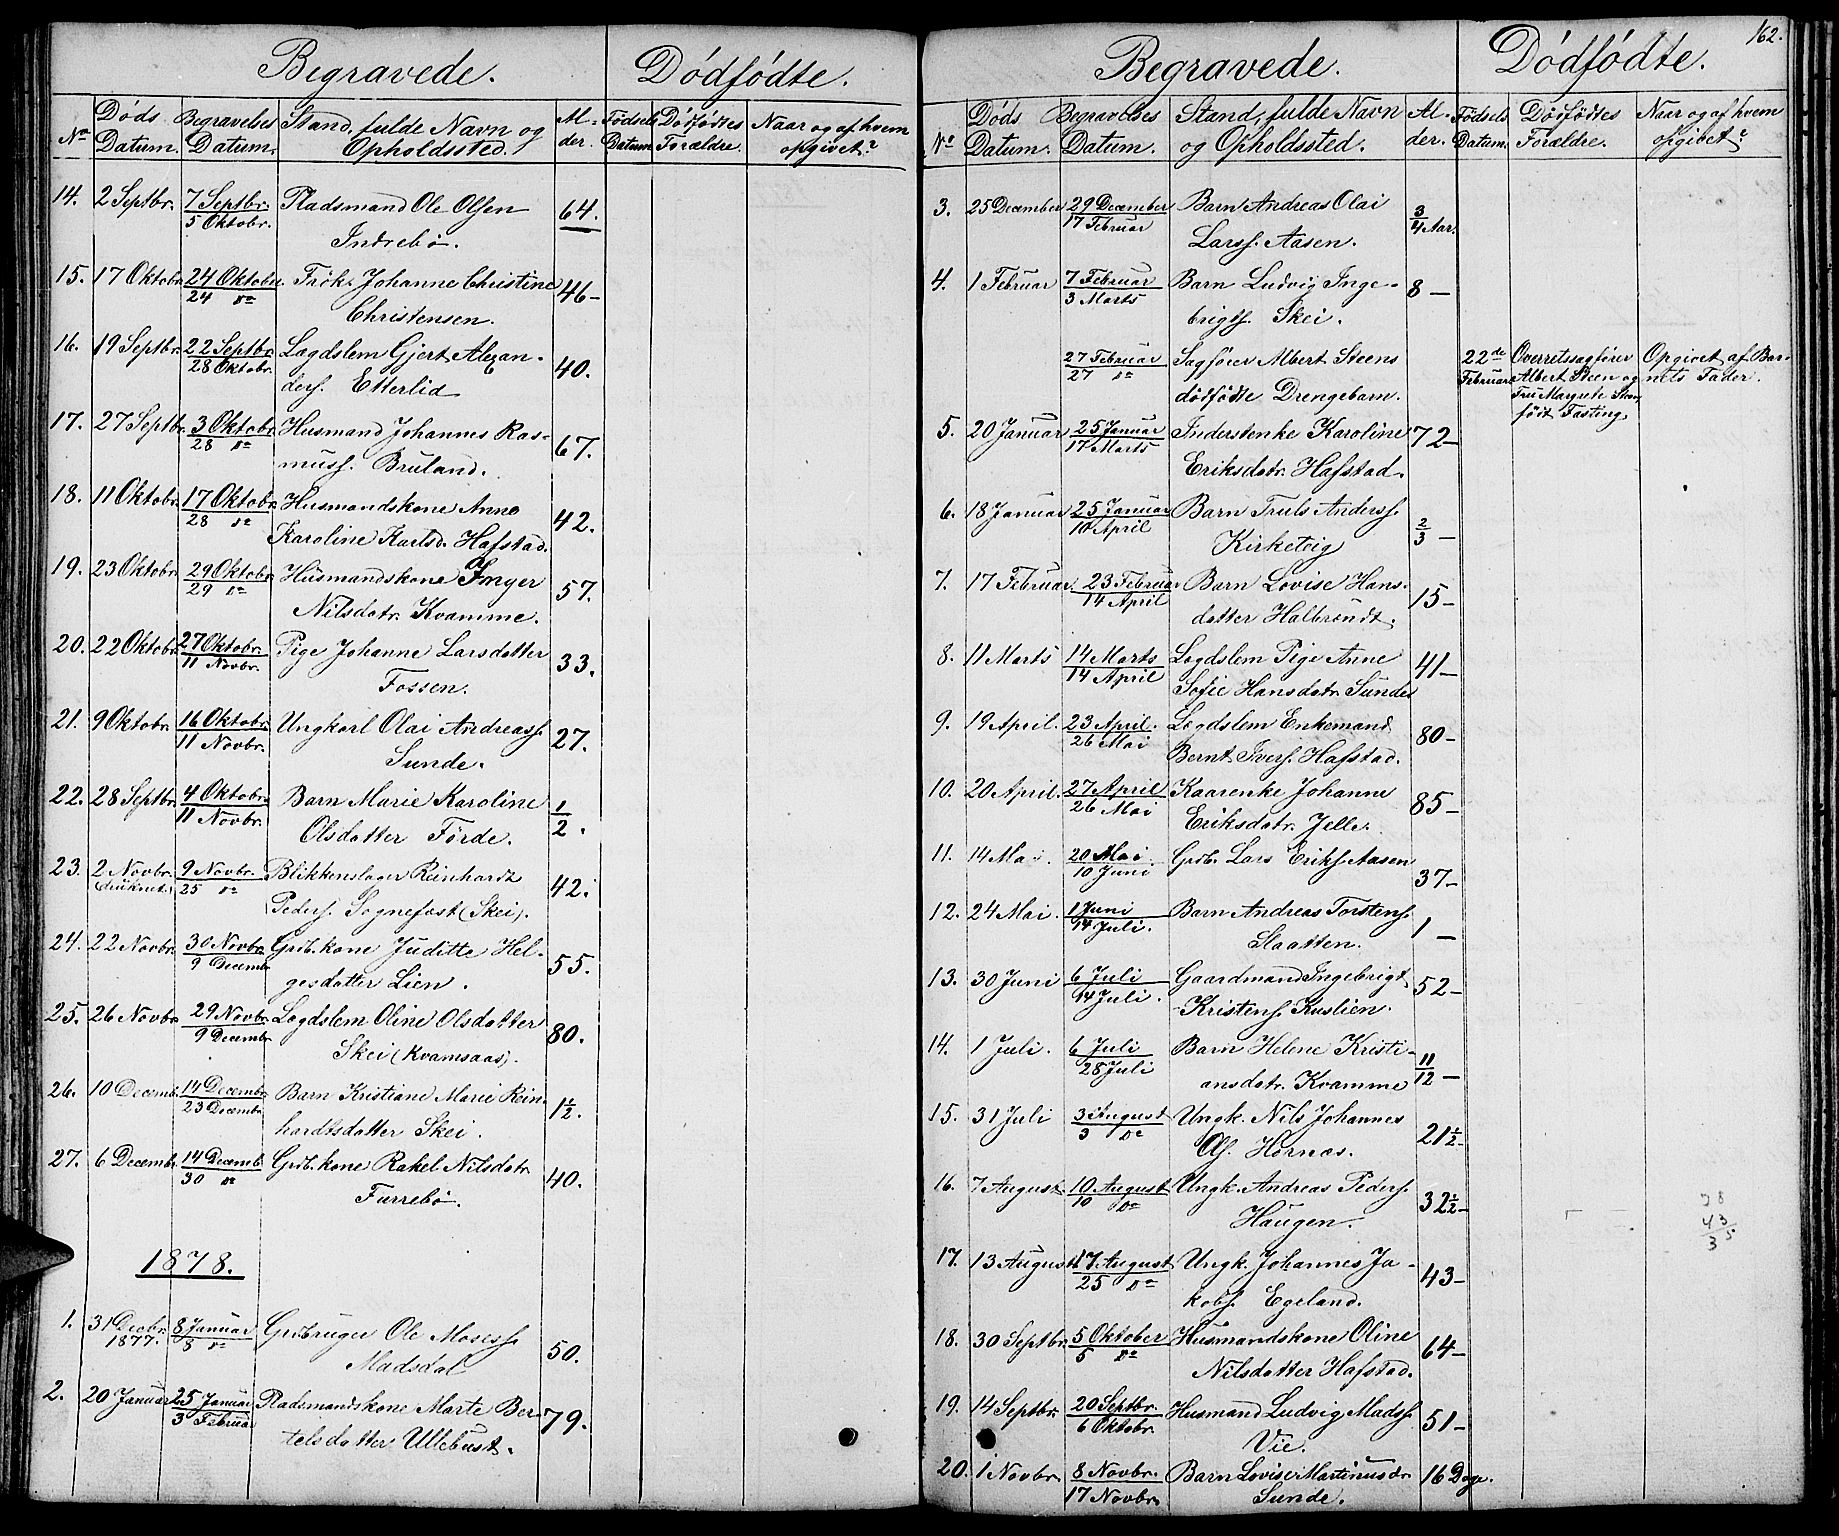 Begravede. Dödfödte.
No Döds Datum. Begravelses Datum. Stand, fulde Navn og Opholdssted. Al-der. Födsels Datum Dödfödtes Forældre. Naar og af hvem opgivet?
14. 2 Septbr. 7 Septbr. Pladsmand Ole Olsen 64.
5 Oktobr. Indrebö.
15. 17 Oktobr. 24 Oktobr. Frök. Johanne Christine 46-
24 do Christensen.
16. 19 Septbr. 22 Septbr. Lægdslem Gjert Alexan- 40.
28 Oktobr. ders. Etterlid
17. 27 Septbr. 3 Oktobr. Husmand Johannes Ras- 67.
28 do muss. Bruland.
18. 11 Oktobr. 17 Oktobr. Husmandskone Anne 42.
28 do Karoline Karlsd. Hafstad.
19. 23 Oktobr. 29 Oktobr. Husmandskone Inger 57.
29 do Nilsdatr. Kvamme.
20. 22 Oktobr. 27 Oktobr. Pige Johanne Larsdatter 33.
11 Novbr. Fossen.
21. 9 Oktobr. 16 Oktobr. Ungkarl Olai Andreass. 27.
11 Novbr. Sunde.
22. 28 Septbr. 4 Oktobr. Barn Marie Karoline 1/2.
11 Novbr. Olsdatter Förde.
23. 2 Novbr. 9 Novbr. Blikkenslager Reinhardt 42.
(druknet) 25 do Peders. Sognefast (Skei).
24. 22 Novbr. 30 Novbr. Grdb.kone Juditte Hel- 55.
9 Decembr gesdatter Lien.
25. 26 Novbr. 29 Novbr. Lægdslem Oline Olsdatter 80.
9 Decembr Skei (Kvamsaas).
26. 10 Decemb. 14 Decembr Barn Kristiane Marie Rein- 1 1/2.
23 Decembr hardtsdatter Skei.
27. 6 Decembr. 14 Decemb. Grdb.kone Rakel Nilsdatr. 40.
30 do Furrebö.
1878.
1. 31 Decbr. 8 Januar Grdbruger Ole Mosess. 50.
1877. 8 do Madsdal
2. 20 Januar 25 Januar Pladsmandskone Marte Ber- 79.
3 Februar telsdatter Ullebust.
162.
Begravede. Dödfödte.
No Döds Datum. Begravelses Datum. Stand, fulde Navn og Opholdssted. Al-der. Födsels Datum. Dödfödtes Forældre. Naar og af hvem opgivet?
3. 25 December 29 December Barn Andreas Olai 3/4 Aar.
17 Februar Larss. Aasen.
4. 1 Februar 7 Februar Barn Ludvig Inge- 8 -
3 Marts brigts. Skei.
27 Februar Sagförer Albert Steens 22de Overretssagförer Opgivet af Bar-
27 do dödfödte Drengebarn. Februar Albert Steen og nets Fader.
Fru Margrete Steen
födt Fasting.
5. 20 Januar 25 Januar Inderstenke Karoline 72-
17 Marts Eriksdatr. Hafstad.
6. 18 Januar 25 Januar Barn Truls Anderss. 2/3 -
10 April Kirketeig
7. 17 Februar. 23 Februar Barn Lovise Hans- 15-
14 April datter Halbrendt.
8. 11 Marts 14 Marts Lægdslem Pige Anne 41-
14 April Sofie Hansdatr. Sunde
9. 19 April. 23 April. Lægdslem Enkemand 80-
26 Mai Bernt Ivers. Hafstad.
10. 20 April. 27 April Kaarenke Johanne 85-
26 Mai Eriksdatr. Jelle.
11. 14 Mai. 20 Mai. Grdb. Lars Eriks. Aasen 37-
10 Juni
12. 24 Mai. 1 Juni Barn Andreas Torstens. 1 -
14 Juli. Slaatten.
13. 30 Juni 6 Juli Gaardmand Ingebrigt 52-
14 Juli. Kristens. Kuslien.
14. 1 Juli. 6 Juli Barn Helene Kristi- 11/12 -
28 Juli ansdatr. Kvamme
15. 31 Juli 3 August Ungk. Nils Johannes 21 1/2-
3 do Ols. Hornæs.
16. 7 August 10 August Ungk. Andreas Peders. 32 1/2-
10 do Haugen.
17. 13 August 17 August Ungk. Johannes Ja- 43-
25 do kobs. Egeland.
18. 30 Septbr. 5 Oktober Husmandskone Oline 64-
5 do Nilsdatter Hafstad.
19. 14 Septbr. 20 Septbr. Husmand Ludvig Madss. 51-
6 Oktobr. Vie.
20. 1 Novbr. 8 Novbr. Barn Lovise Martinusdr. 16 Dage.
17 Novbr. Sunde.